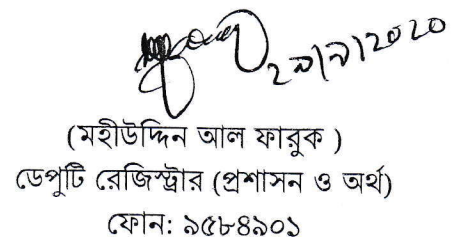 ২৯/৯/২০২০
(মহীউদ্দিন আল ফারুক )
ডেপুটি রেজিস্ট্রার (প্রশাসন ও অর্থ)
ফোন: ৯৫৮৪৯০১